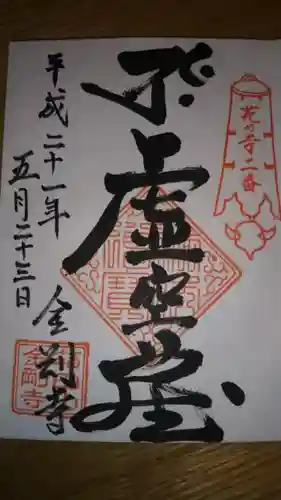 花の寺十二番
虚空蔵
平成二十一年
五月二十三日
金剛寺
金剛寺